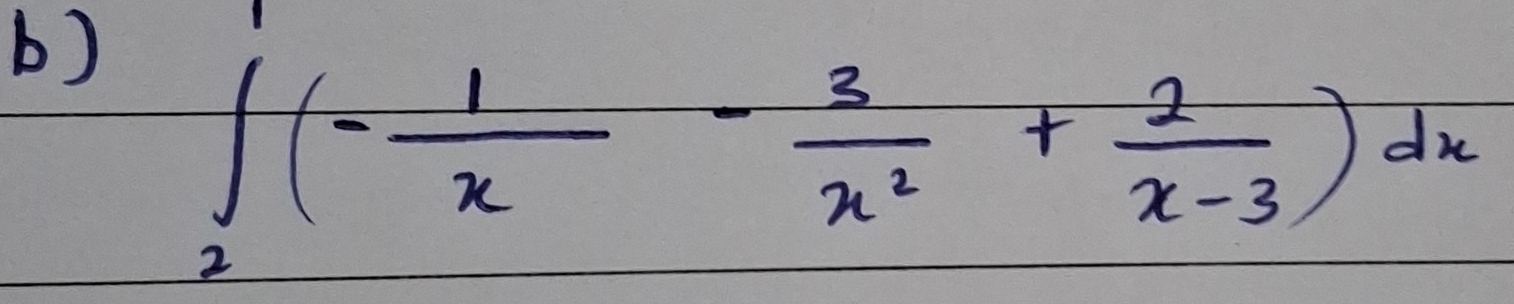 b) ∫₂¹ (- 1/x - 3/x² + 2/(x-3)) dx